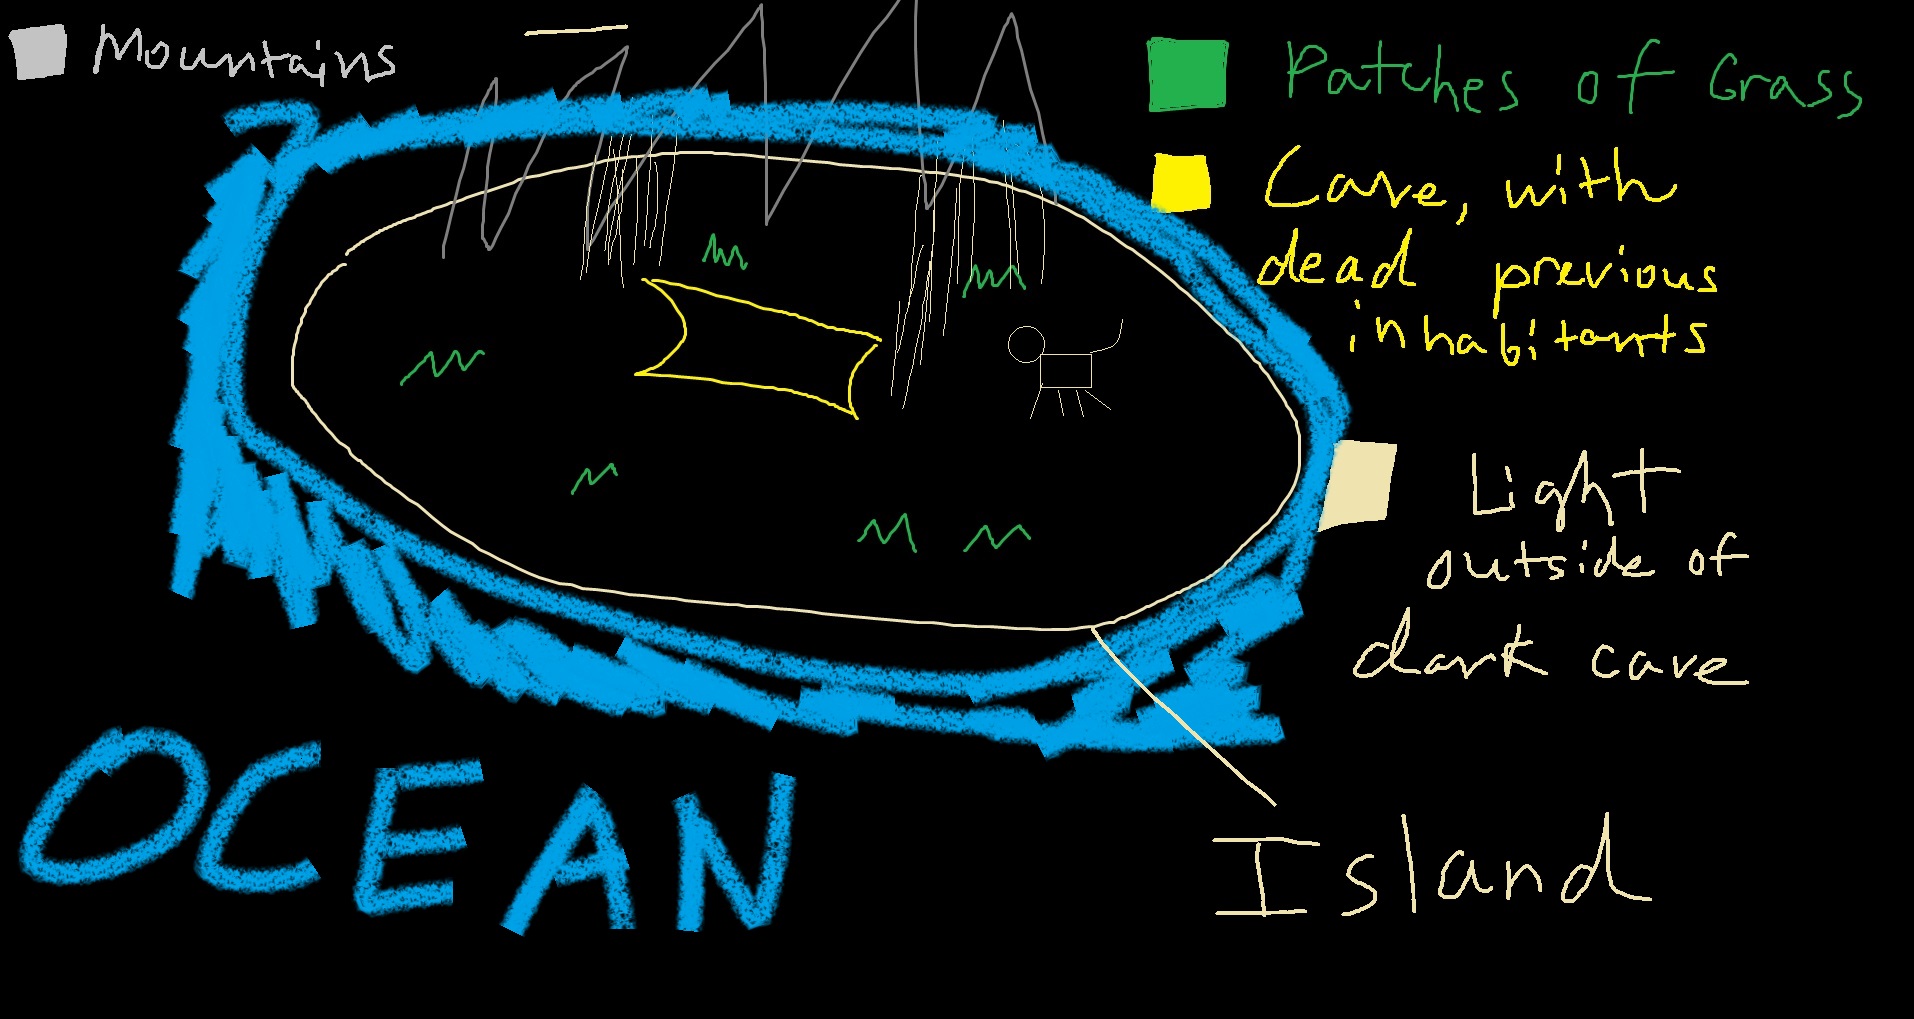 Mountains
Patches of Grass
Cave, with
dead previous
inhabitants
Light
outside of
dark cave
OCEAN
Island